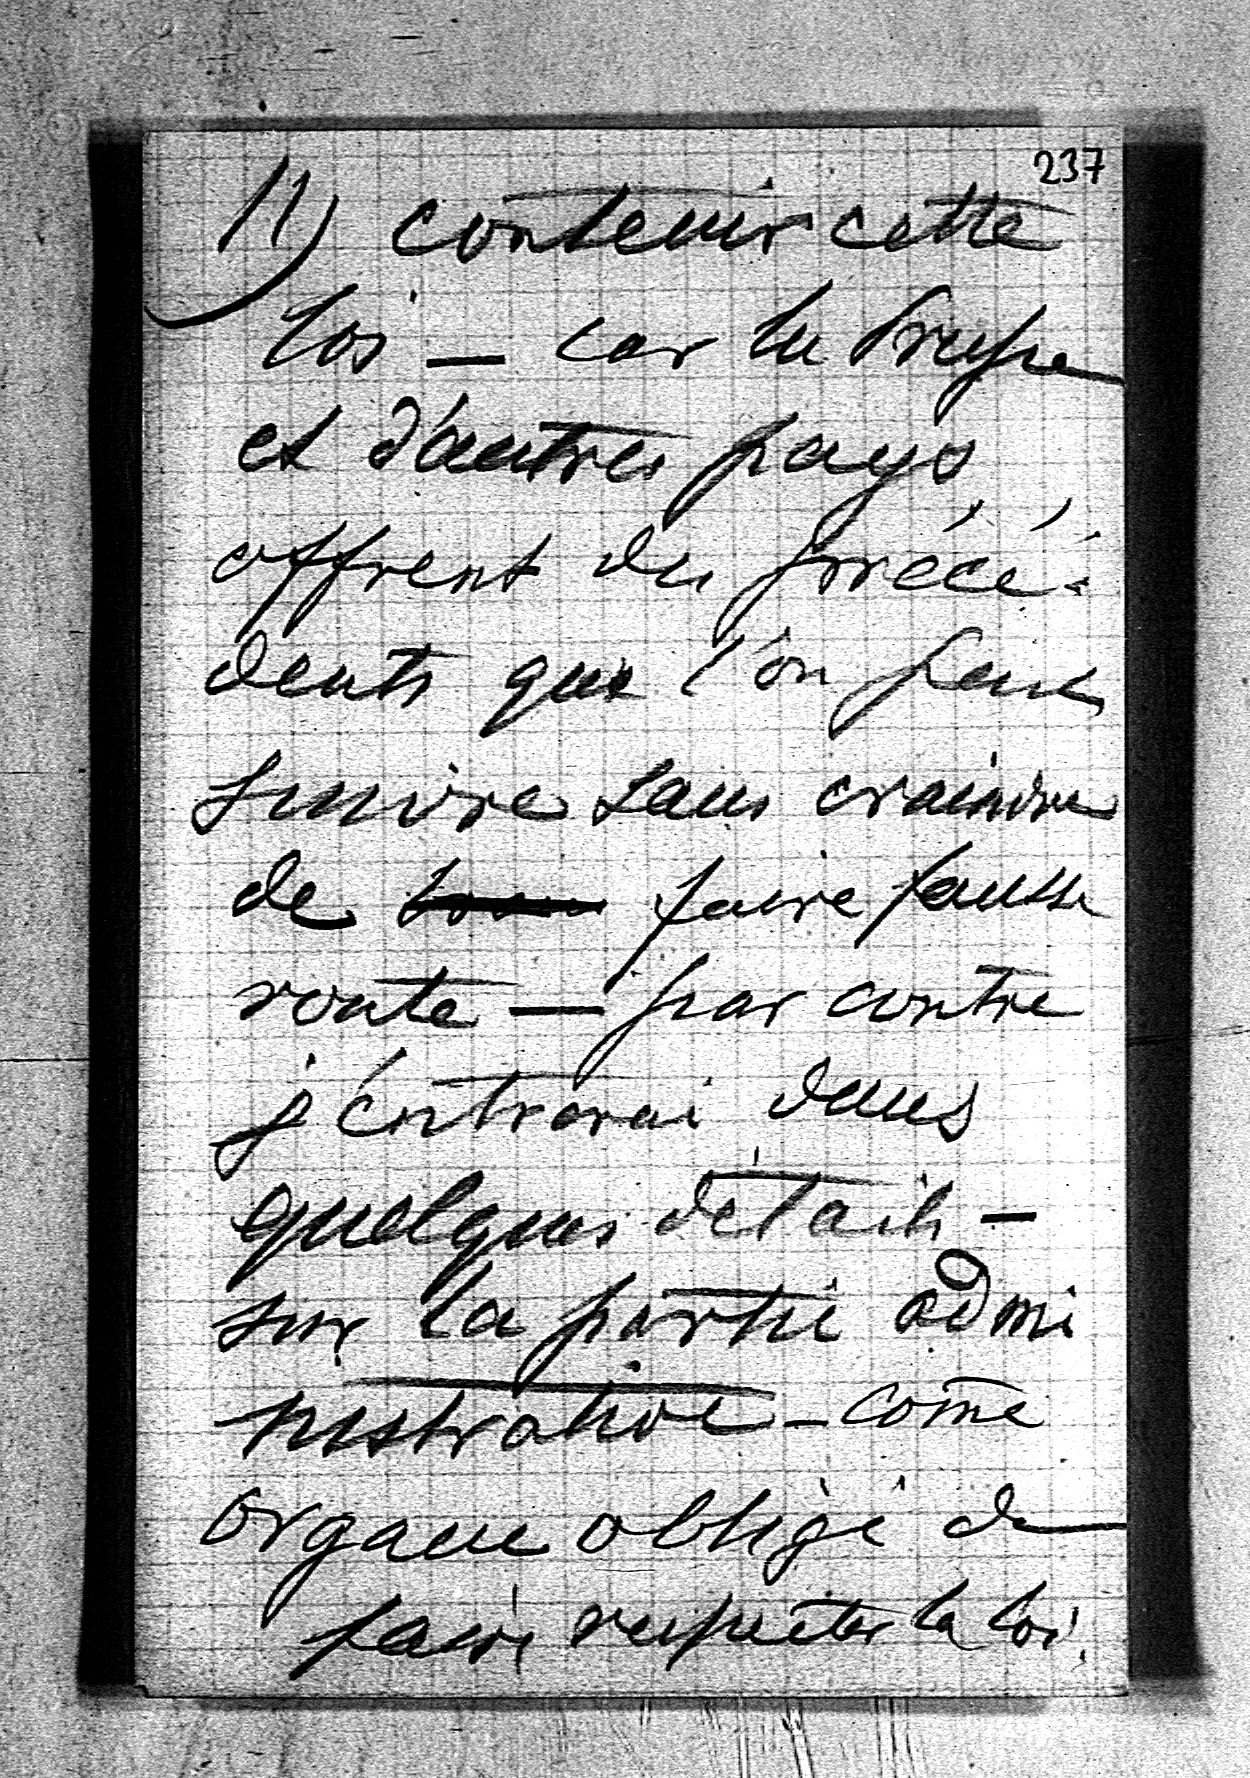 237
11) contenir cette
loi — car la Prusse
et d'autres pays
offrent des précé-
dents que l'on peut
suivre sans craindre
de faire fausse
route — par contre
j'entrerai dans
quelques détails —
sur la partie admi
nistrative — come
organe obligé de
faire respecter la loi.